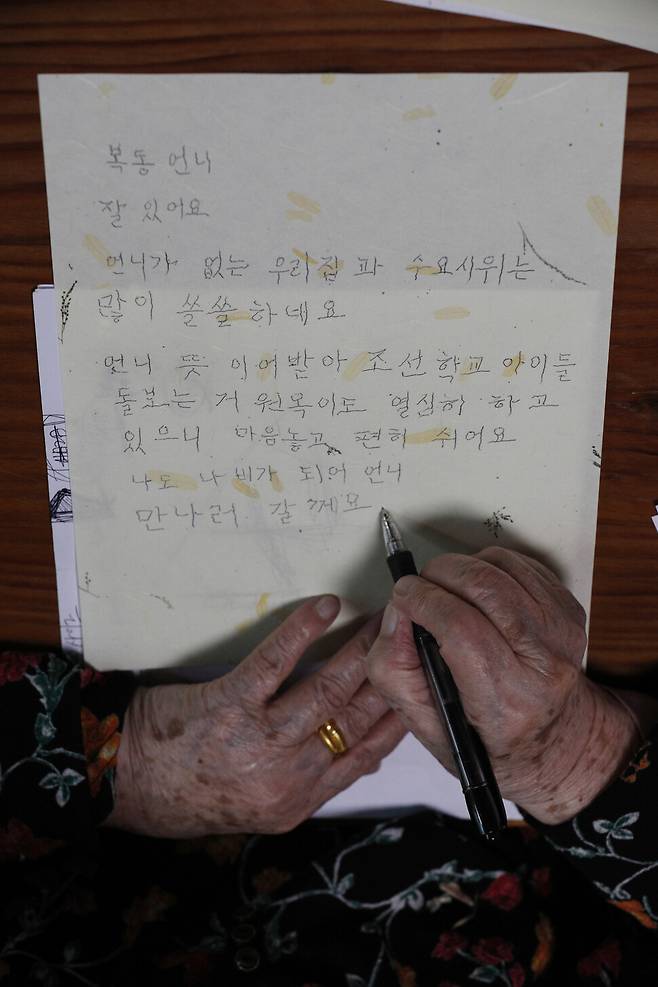 복동 언니
잘 있어요
언니가 없는 우리집 과 수요시위는
많이 쓸쓸하네요
언니 뜻 이어받아 조선학교 아이들
돌보는 거 원옥이도 열심히 하고
있으니 마음놓고 편히 쉬어요
나도 나비가 되어 언니
만나러 갈께요